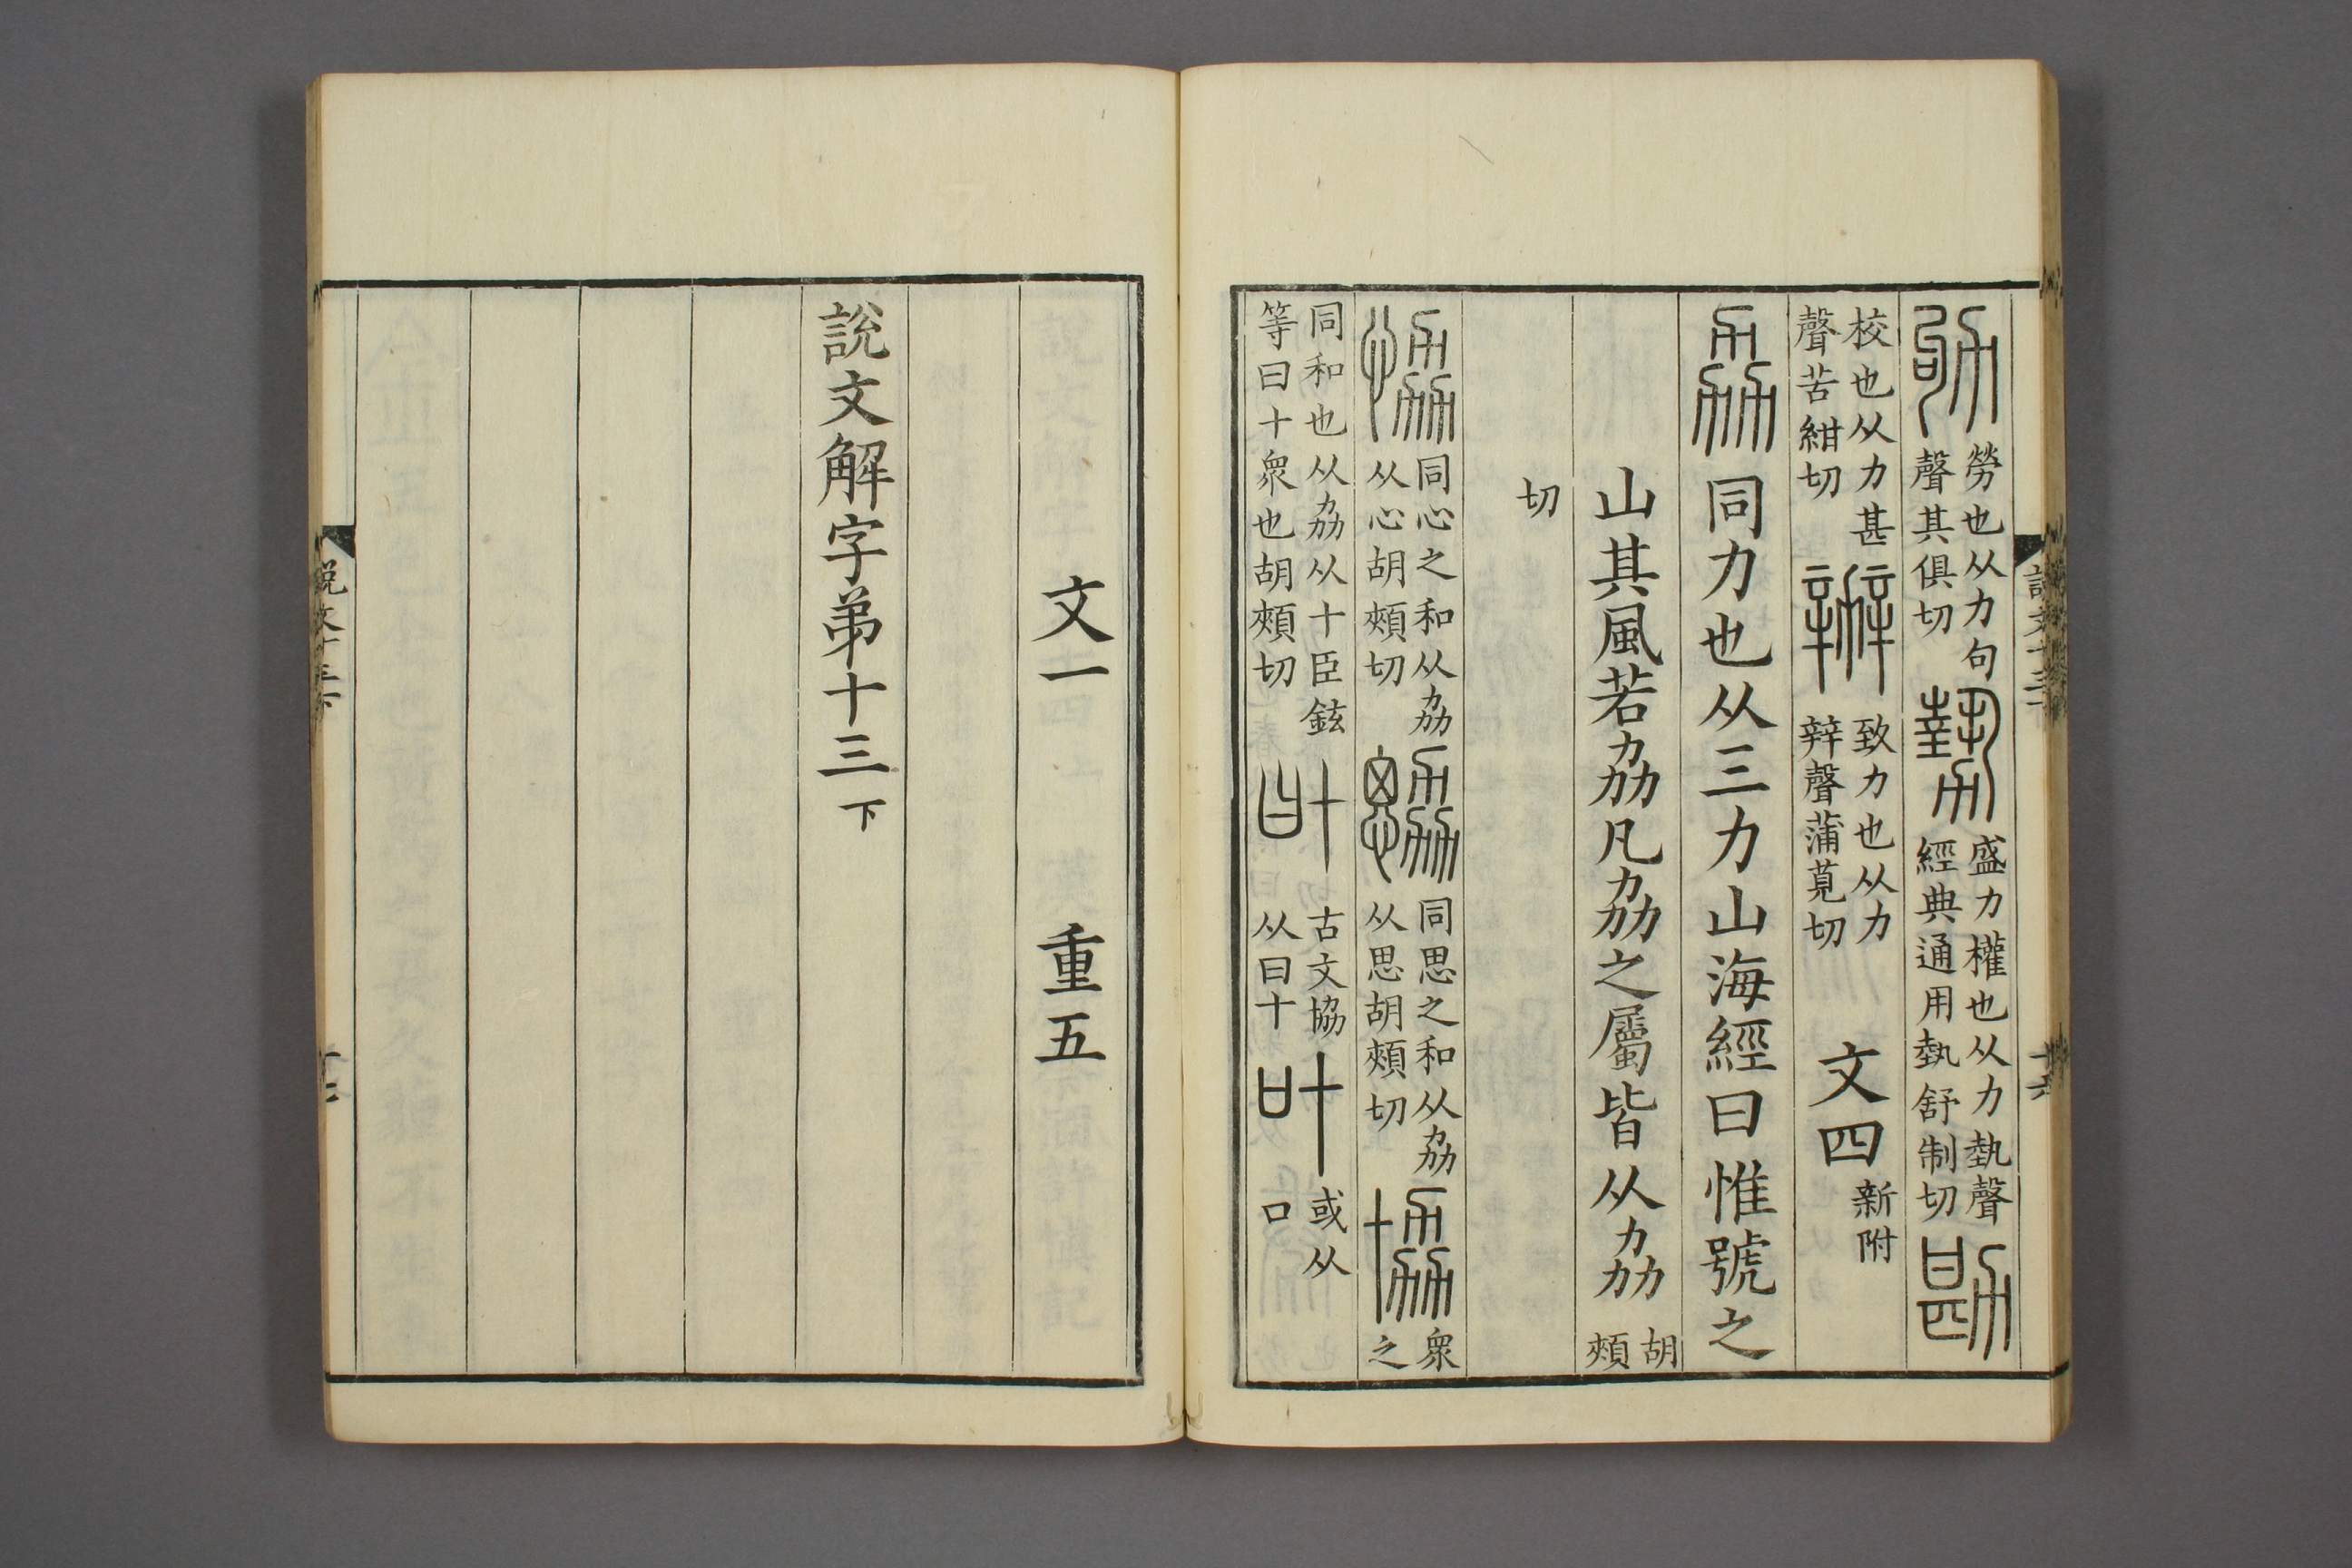 劬勞也从力句
聲其俱切
勢盛力權也从力埶聲
經典通用埶舒制切
勘
校也从力甚
聲苦紺切
辦致力也从力
辡聲蒲莧切
文四新附
劦同力也从三力山海經曰惟號之
山其風若劦凡劦之屬皆从劦胡頰
切
恊同心之和从劦
从心胡頰切
勰同思之和从劦
从思胡頰切
協眾之
同和也从劦从十臣鉉
等曰十衆也胡頰切
叶古文協
从曰十
叶或从
口
文一 重五
說文解字弟十三下
說文十三下